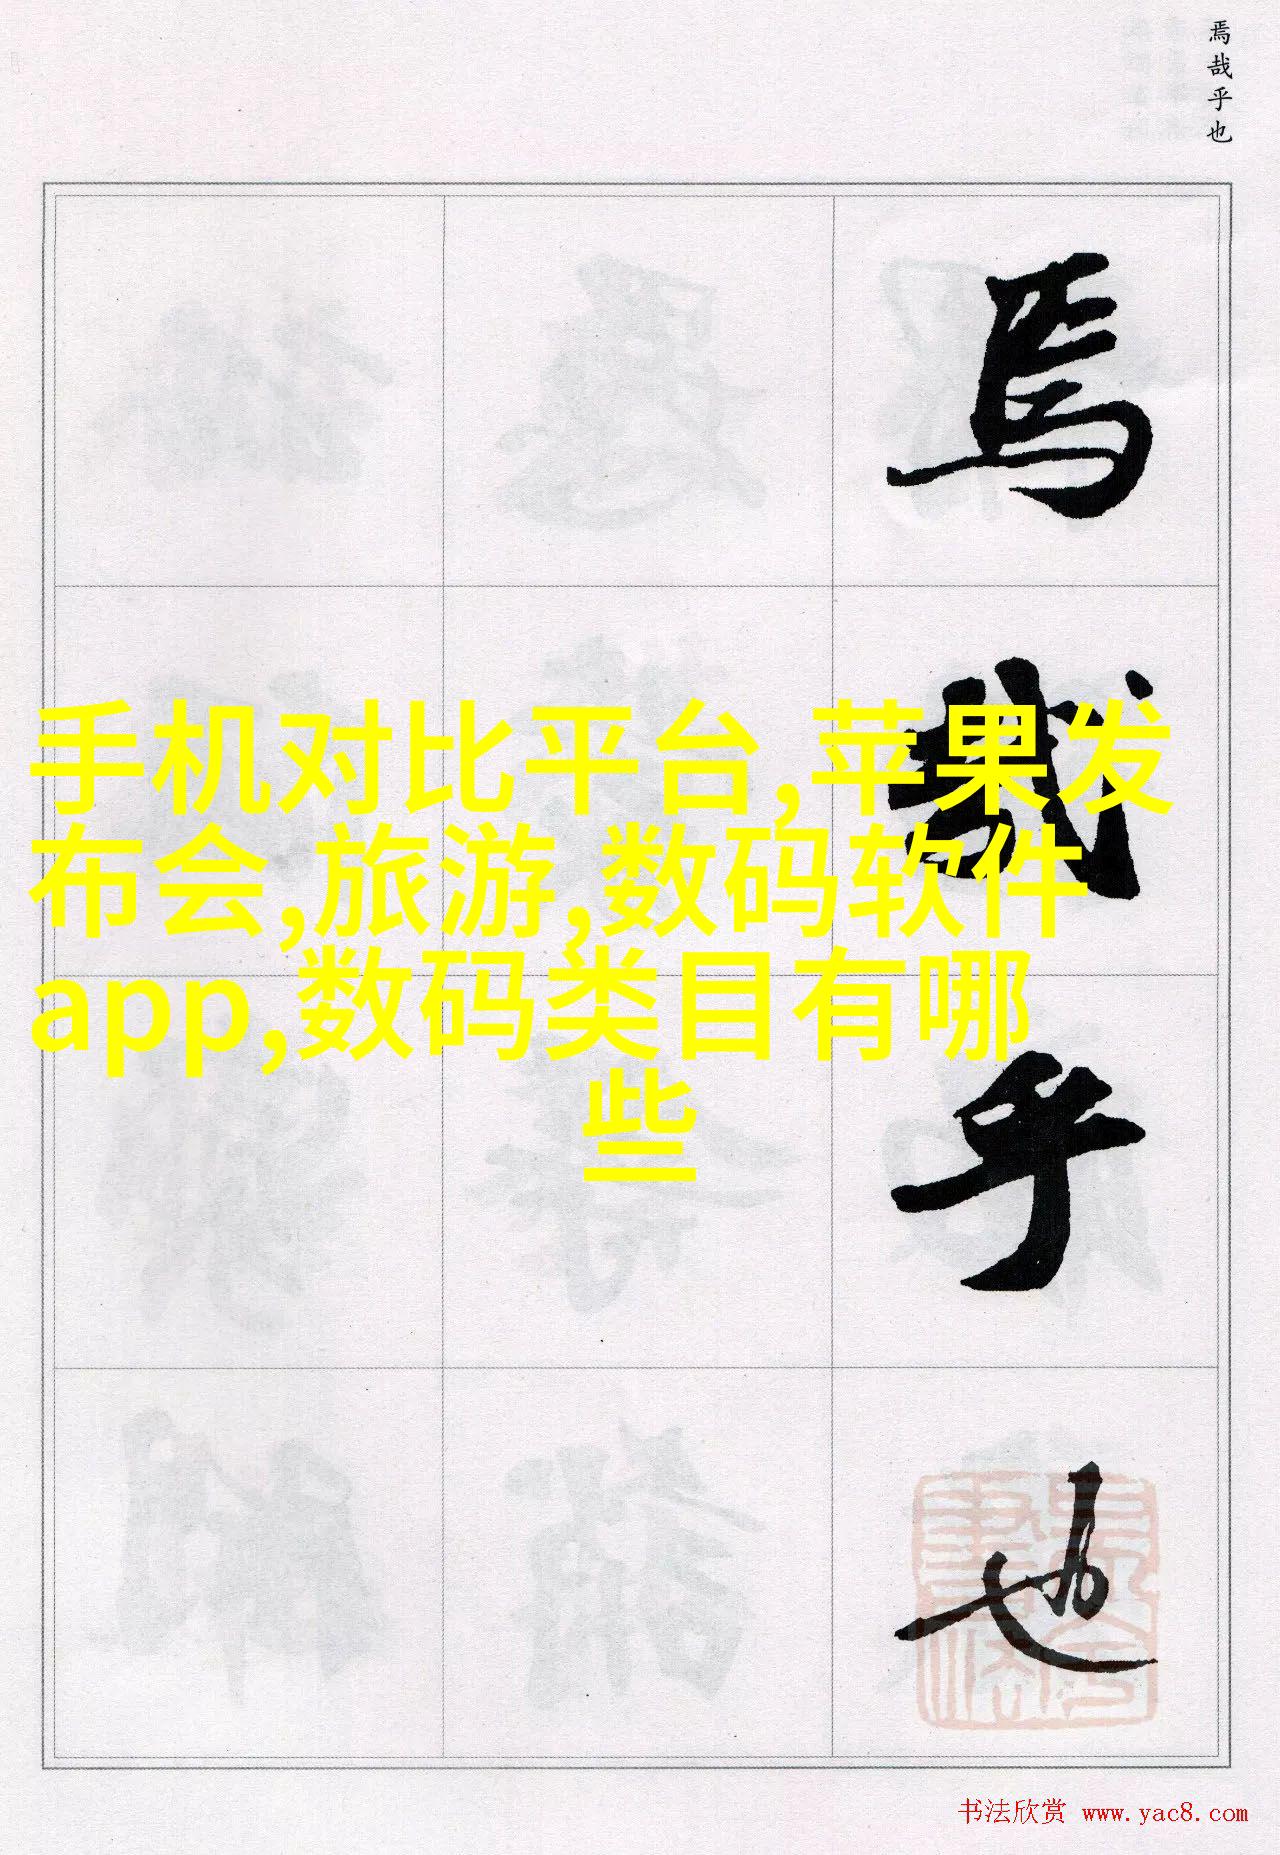 焉哉乎也
焉
哉
乎
也
手机对比平台,苹果发
布会,旅游,数码软件
app,数码类目有哪
些
书法欣赏 www.yac8.com